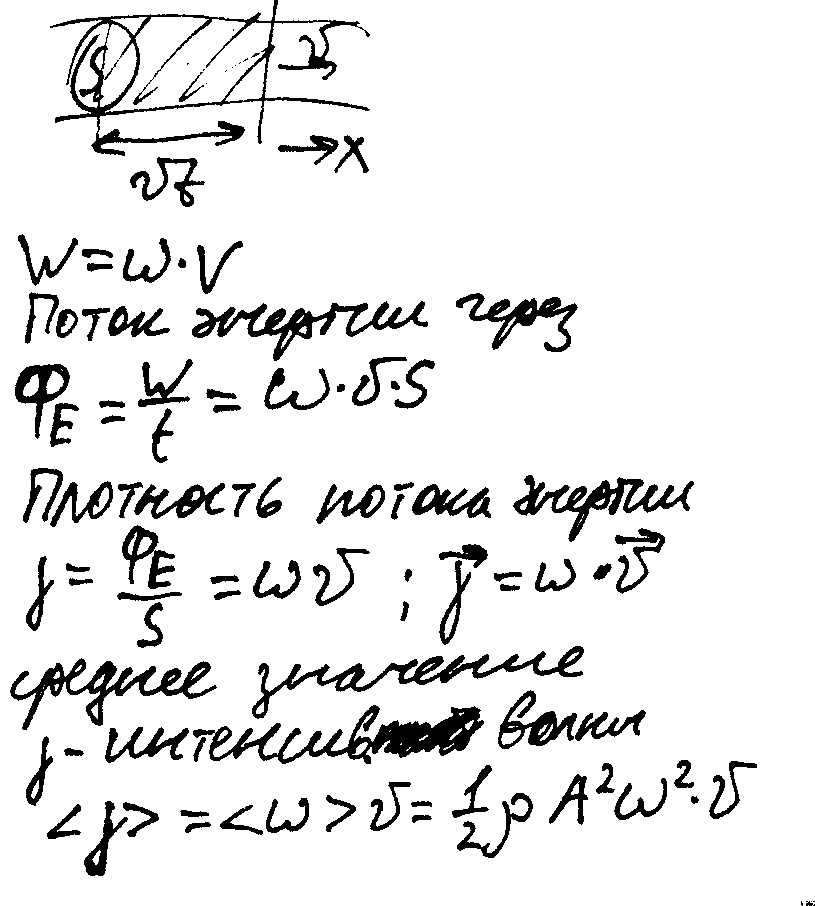 S
v
vt
→ x
W = w · V
Поток энергии через
Φ_E = W/t = w · v · S
Плотность потока энергии
j = Φ_E/S = w v ; j⃗ = w · v⃗
среднее значение
j - интенсив волны
<j> = <w> v = 1/2 ρ A² ω² · v